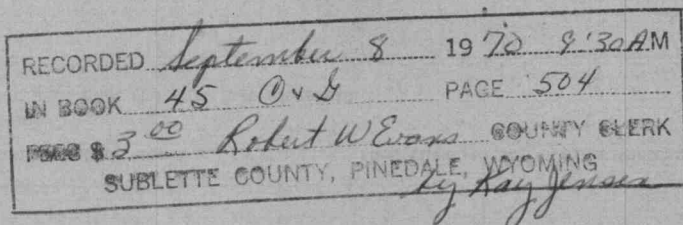 RECORDED September 8 1970 9:30 A M
IN BOOK 45 O & G PAGE 504
FEES $ 3 00 Robert W Evans COUNTY CLERK
SUBLETTE COUNTY, PINEDALE, WYOMING
by Kay Jensen